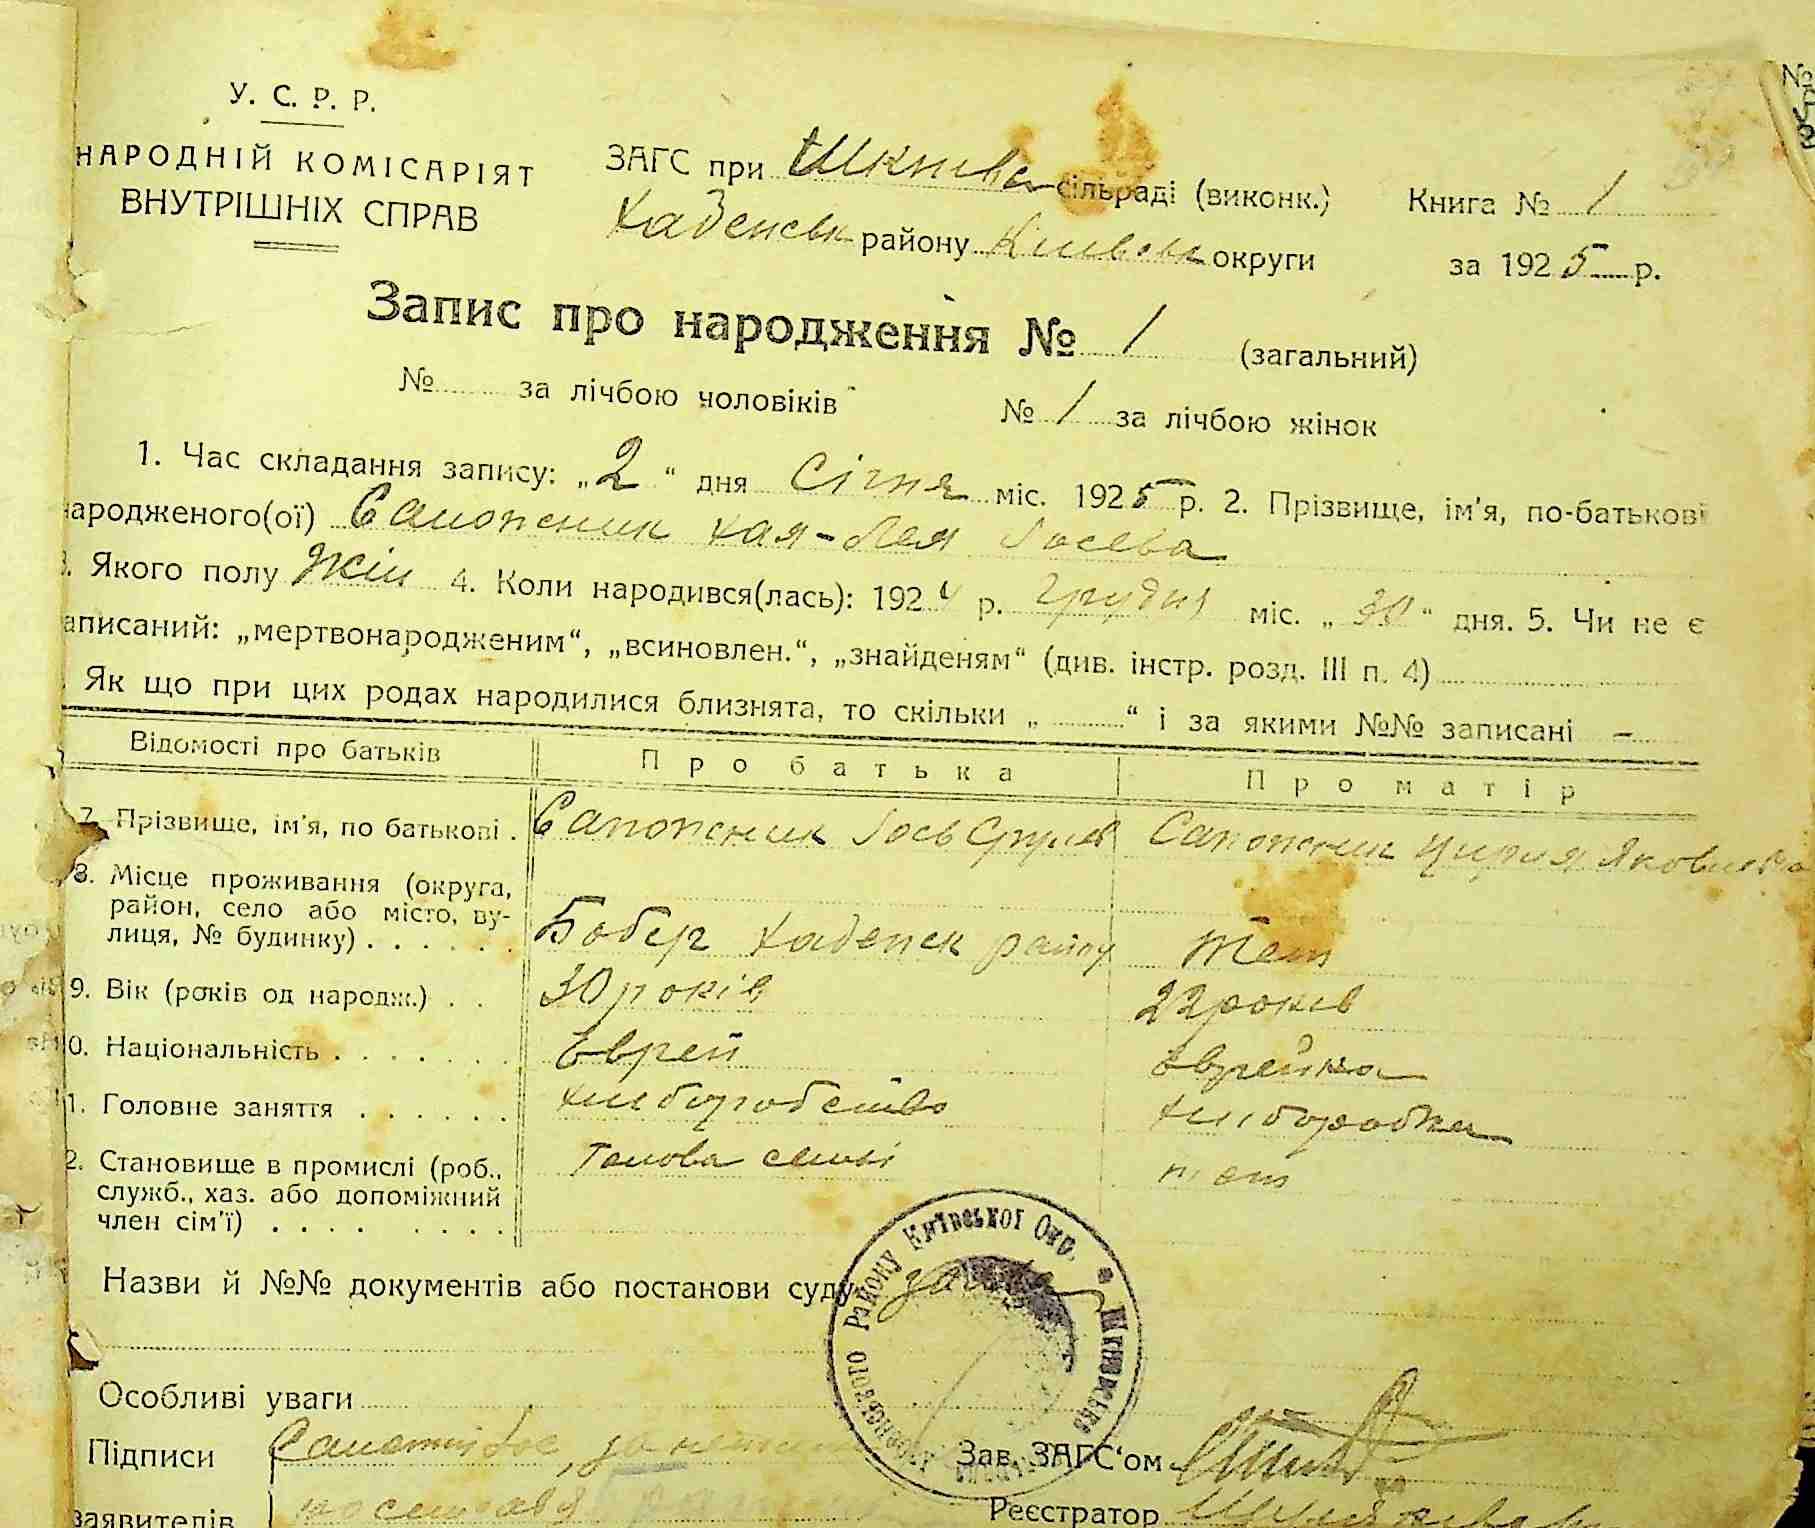 У. С. Р. Р.
НАРОДНІЙ КОМІСАРІЯТ
ВНУТРІШНІХ СПРАВ
ЗАГС при сільраді (виконк.)
району округи
Книга № 1
за 1925 р.
Запис про народження № 1 (загальний)
№ за лічбою чоловіків
№ 1 за лічбою жінок
1. Час складання запису: „2“ дня Січня міс. 1925 р. 2. Прізвище, ім'я, по-батькові
народженого(ої) Сапожник Хая-Лея Йосева
3. Якого полу Жін 4. Коли народився(лась): 1924 р. Грудня міс. „30“ дня. 5. Чи не є
аписаний: „мертвонародженим“, „всиновлен.“, „знайденям“ (див. інстр. розд. III п. 4)
Як що при цих родах народилися близнята, то скільки „ “ і за якими №№ записані –
Відомості про батьків
Про батька
Про матір
7. Прізвище, ім'я, по батькові .
Сапожник Йось
Сапожник Яковлева
8. Місце проживання (округа,
район, село або місто, ву-
лиця, № будинку) . . . . . .
Бобер
теж
9. Вік (років од народж.) . .
30 років
22 років
0. Національність . . . . . . .
Еврей
Еврейка
1. Головне заняття . . . . . .
хліборобство
хліборобка
2. Становище в промислі (роб.,
служб., хаз. або допоміжний
член сім'ї) . . . . . . . .
Голова сімьі
Назви й №№ документів або постанови суду
РАЙОНУ КИЇВСЬКОЇ ОКР.
Особливі уваги
Підписи
заявителів
Зав. ЗАГС'ом
Реєстратор